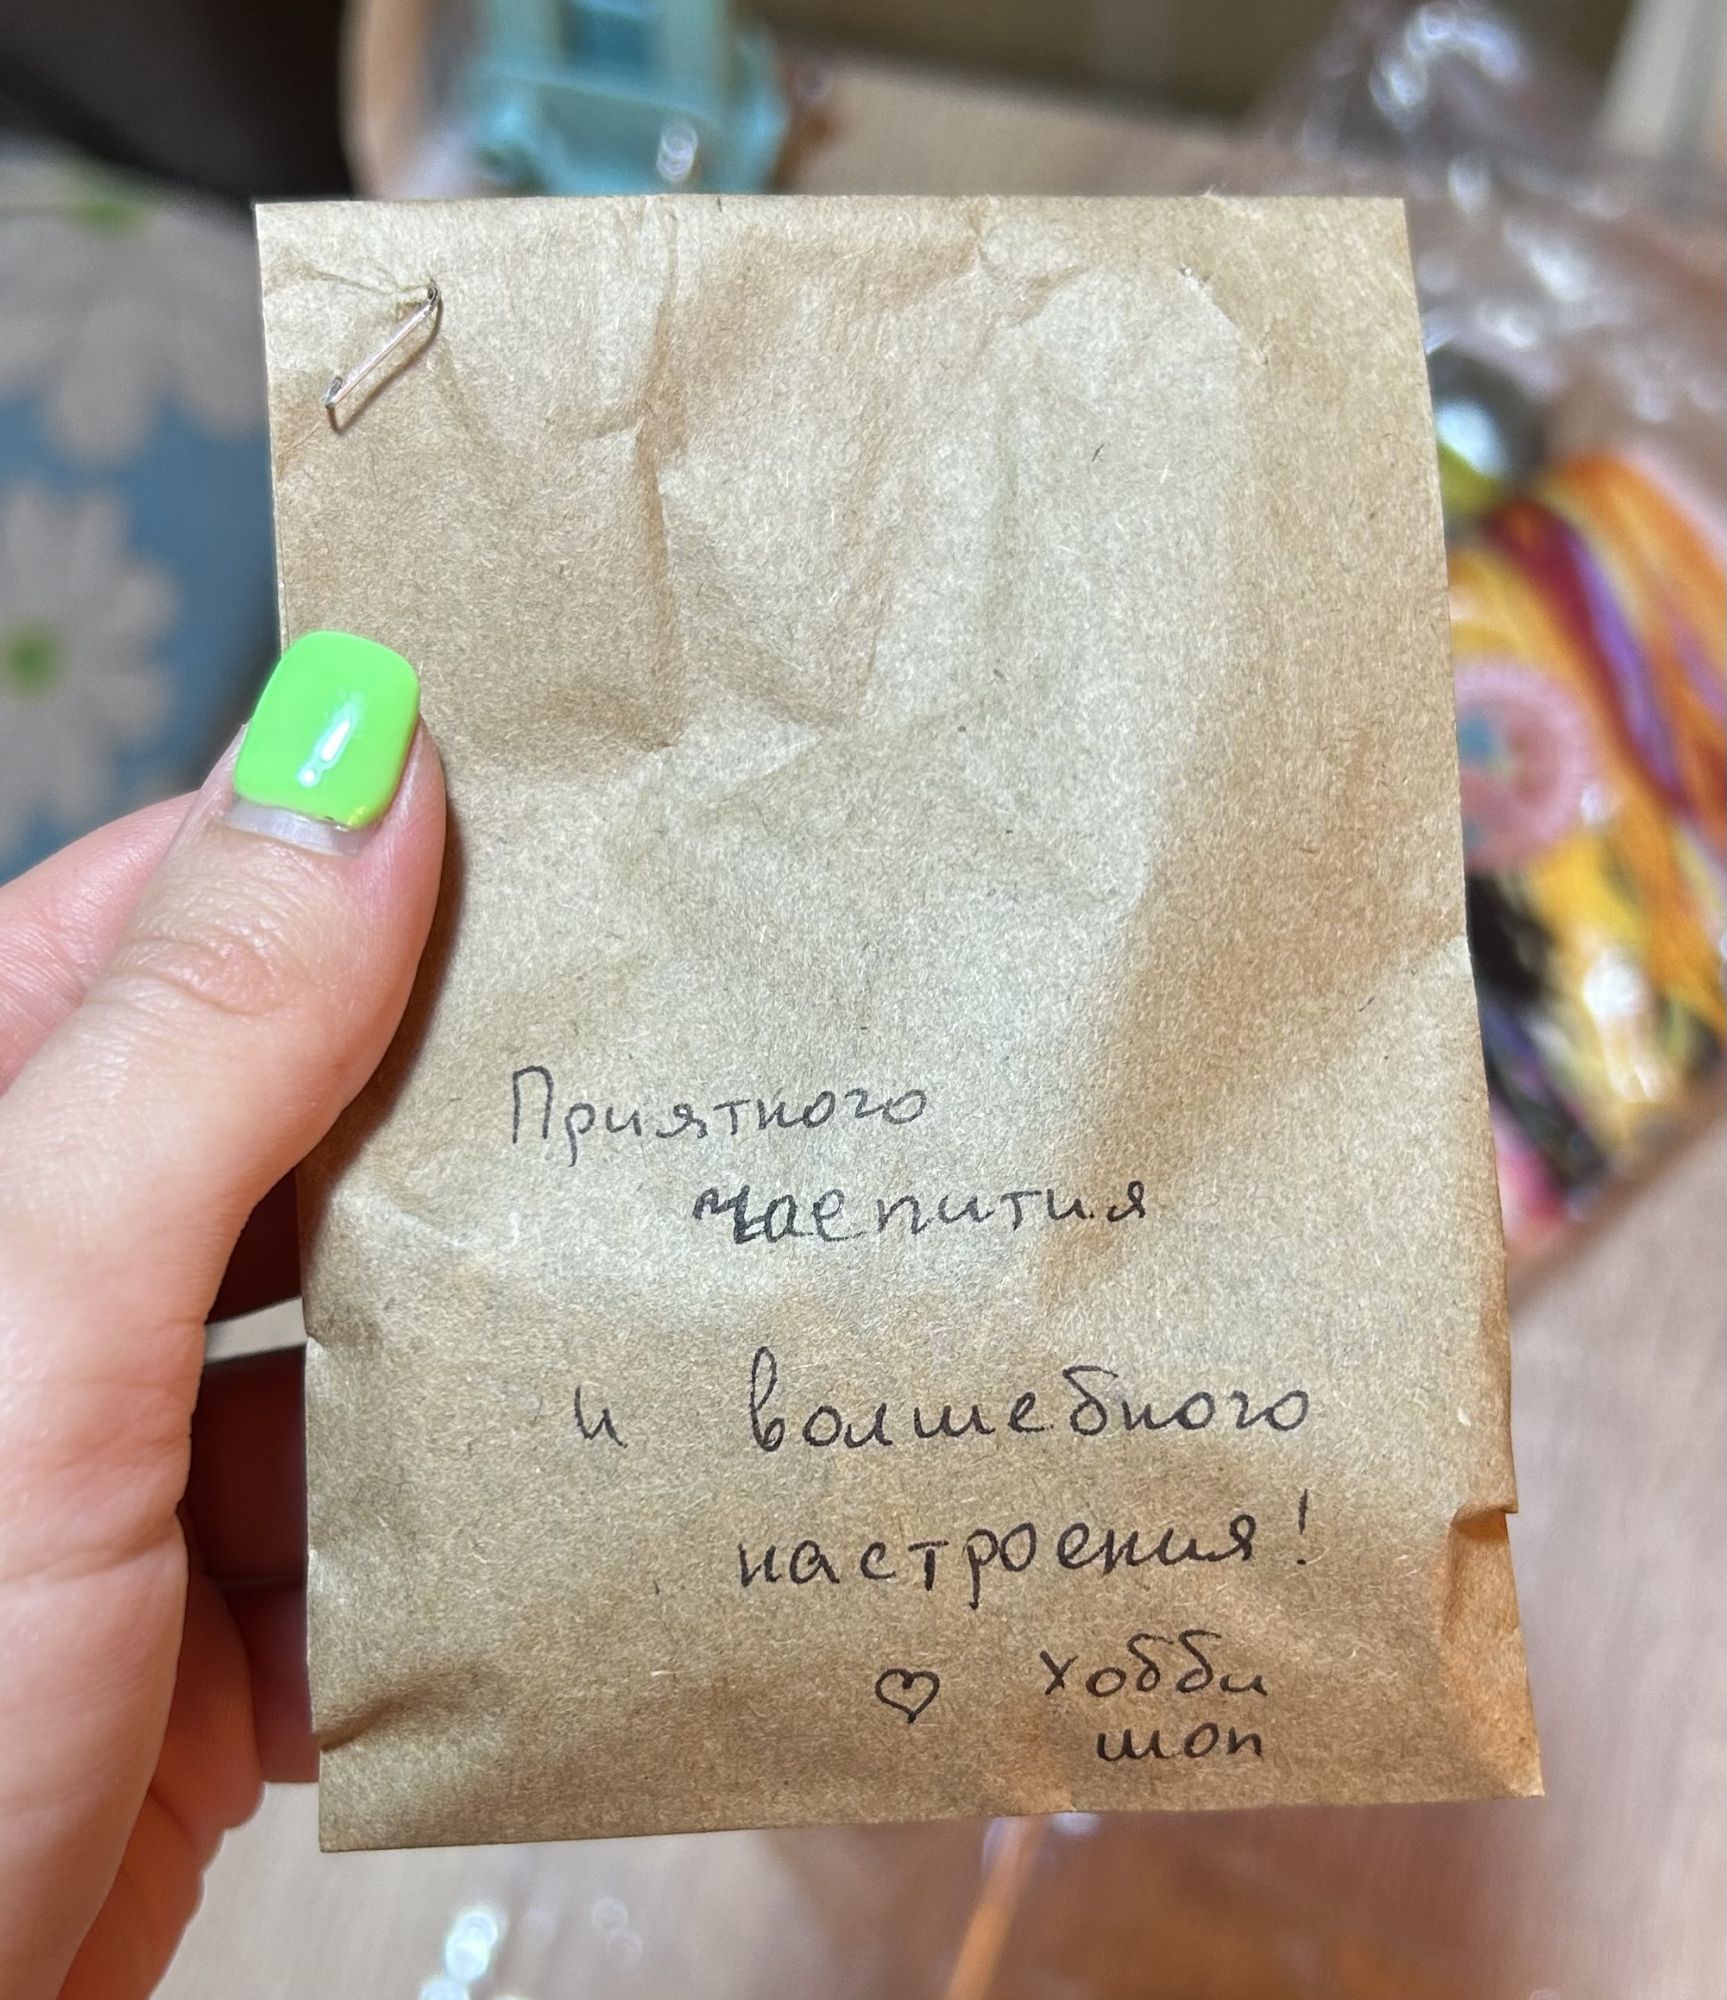 Приятного
чаепития
и волшебного
настроения!
♡ хобби
шоп